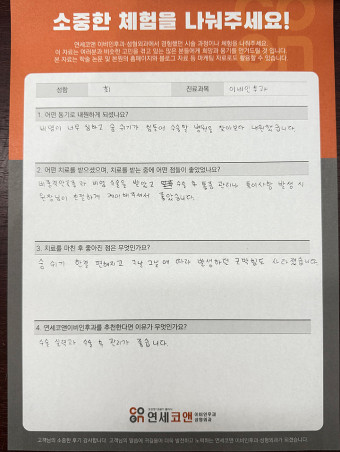 소중한 체험을 나눠주세요!
연세코앤 이비인후과 성형외과에서 경험했던 시술 과정이나 체험을 나눠주세요.
이 치료는 여러분과 비슷한 고민을 겪고 있는 많은 분들에게 희망과 용기를 안겨드릴 것 입니다.
본 자료는 학술 논문 및 본원의 홈페이지와 블로그 자료 등 마케팅 자료로도 활용할 수 있습니다.
성함 진료과목 이비인후과
1. 어떤 동기로 내원하게 되셨나요?
비염이 너무 심하고 숨 쉬기가 힘들어 수술할 병원을 찾아보다 내원했습니다.
2. 어떤 치료를 받으셨으며, 치료를 받는 중에 어떤 점들이 좋았었나요?
비중격만곡증과 비염 수술을 받았고 수술 후 통증 관리나 특이사항 발생 시
원장님이 친절하게 케어해주셔서 좋았습니다.
3. 치료를 마친 후 좋아진 점은 무엇인가요?
숨 쉬기 한결 편해지고 그에 따라 발생하던 구막힘도 사라졌습니다.
4. 연세코앤이비인후과를 추천한다면 이유가 무엇인가요?
수술 실력과 수술 후 관리가 좋습니다.
연세코앤 이비인후과 성형외과
고객님의 소중한 후기 감사합니다.